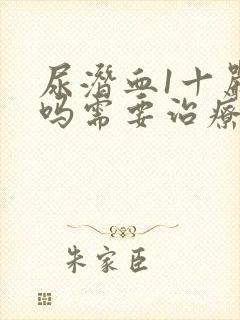 尿潜血1十
吗需要治疗
朱家臣